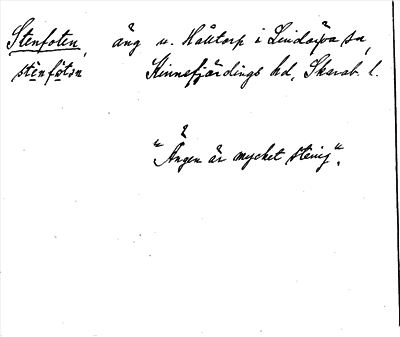 Stenfoten, äng u. Hålltorp i Lindärva sn,
stènfòtn Kinnefjärdings hd, Skarab. l.
"Ängen är mycket stenig".